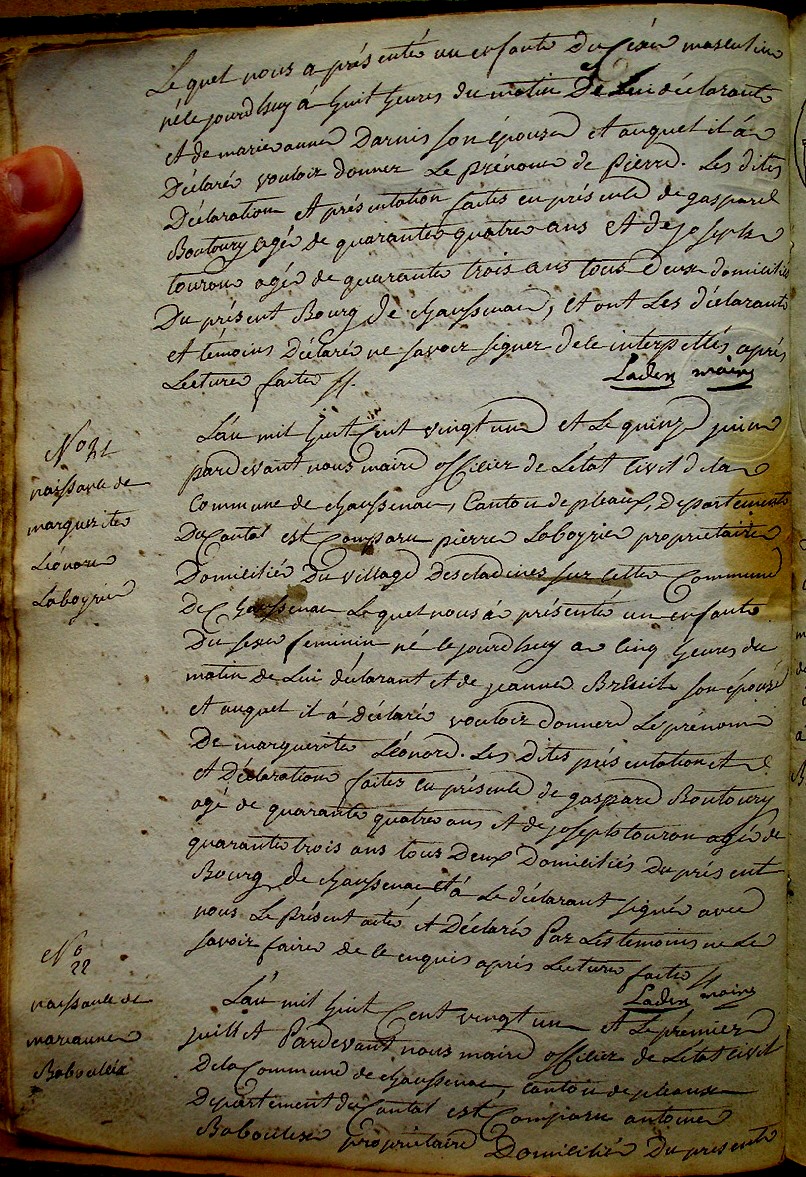 Le quel nous a présenté un enfant du sexe masculin
né le jourdhuy à huit heures du matin De Lui déclarant
et de marie anne Darnis son épouse et auquel il a
Déclaré vouloir donner Le prénom de pierre. Les dites
Déclaration et présentation faites en présence de gaspard
Boutoury agé de quarante quatre ans et de joseph
touron agé de quarante trois ans tous deux domiciliés
Du présent Bourg de chaussenac, et ont Les déclarant
et témoins Déclaré ne savoir signer de ce interpellés après
Lecture faite //.
Laden maire
L'an mil huit Cent vingt un et Le quinze juin
pardevant nous maire officier de L'état Civil de la
Commune de chaussenac, Canton de pleaux, Departement
Du Cantal est Comparu pierre Laboyrie propriétaire
Domicilié Du village Descladines sur cette Commune
De Chaussenac Le quel nous a présenté un enfant
Du sexe feminin né le jourdhuy a Cinq heures du
matin de Lui déclarant et de jeanne Breuil son épouse
et auquel il á Déclaré vouloir donner Le prénom
De marguerite Léonore. Les dites présentation et
et Déclaration faites en présence de gaspard Boutoury
agé de quarante quatre ans et de joseph touron agé de
quarante trois ans tous Deux Domiciliés Du présent
Bourg de chaussenac et á Le déclarant signé avec
nous Le présent acte, et Déclaré Par Les témoins ne Le
savoir faire de ce enquis après Lecture faite //
Laden maire
L'an mil huit Cent vingt un et Le premier
juillet Pardevant nous maire officier de L'état Civil
De la Commune de chaussenac, canton de pleaux
Departement du Cantal est Comparu antoine
Baboulex propriétaire Domicilié Du present
No 21
naissance de
marguerite
Léonore
Laboyrie
No
22
naissance de
marianne
Baboulex